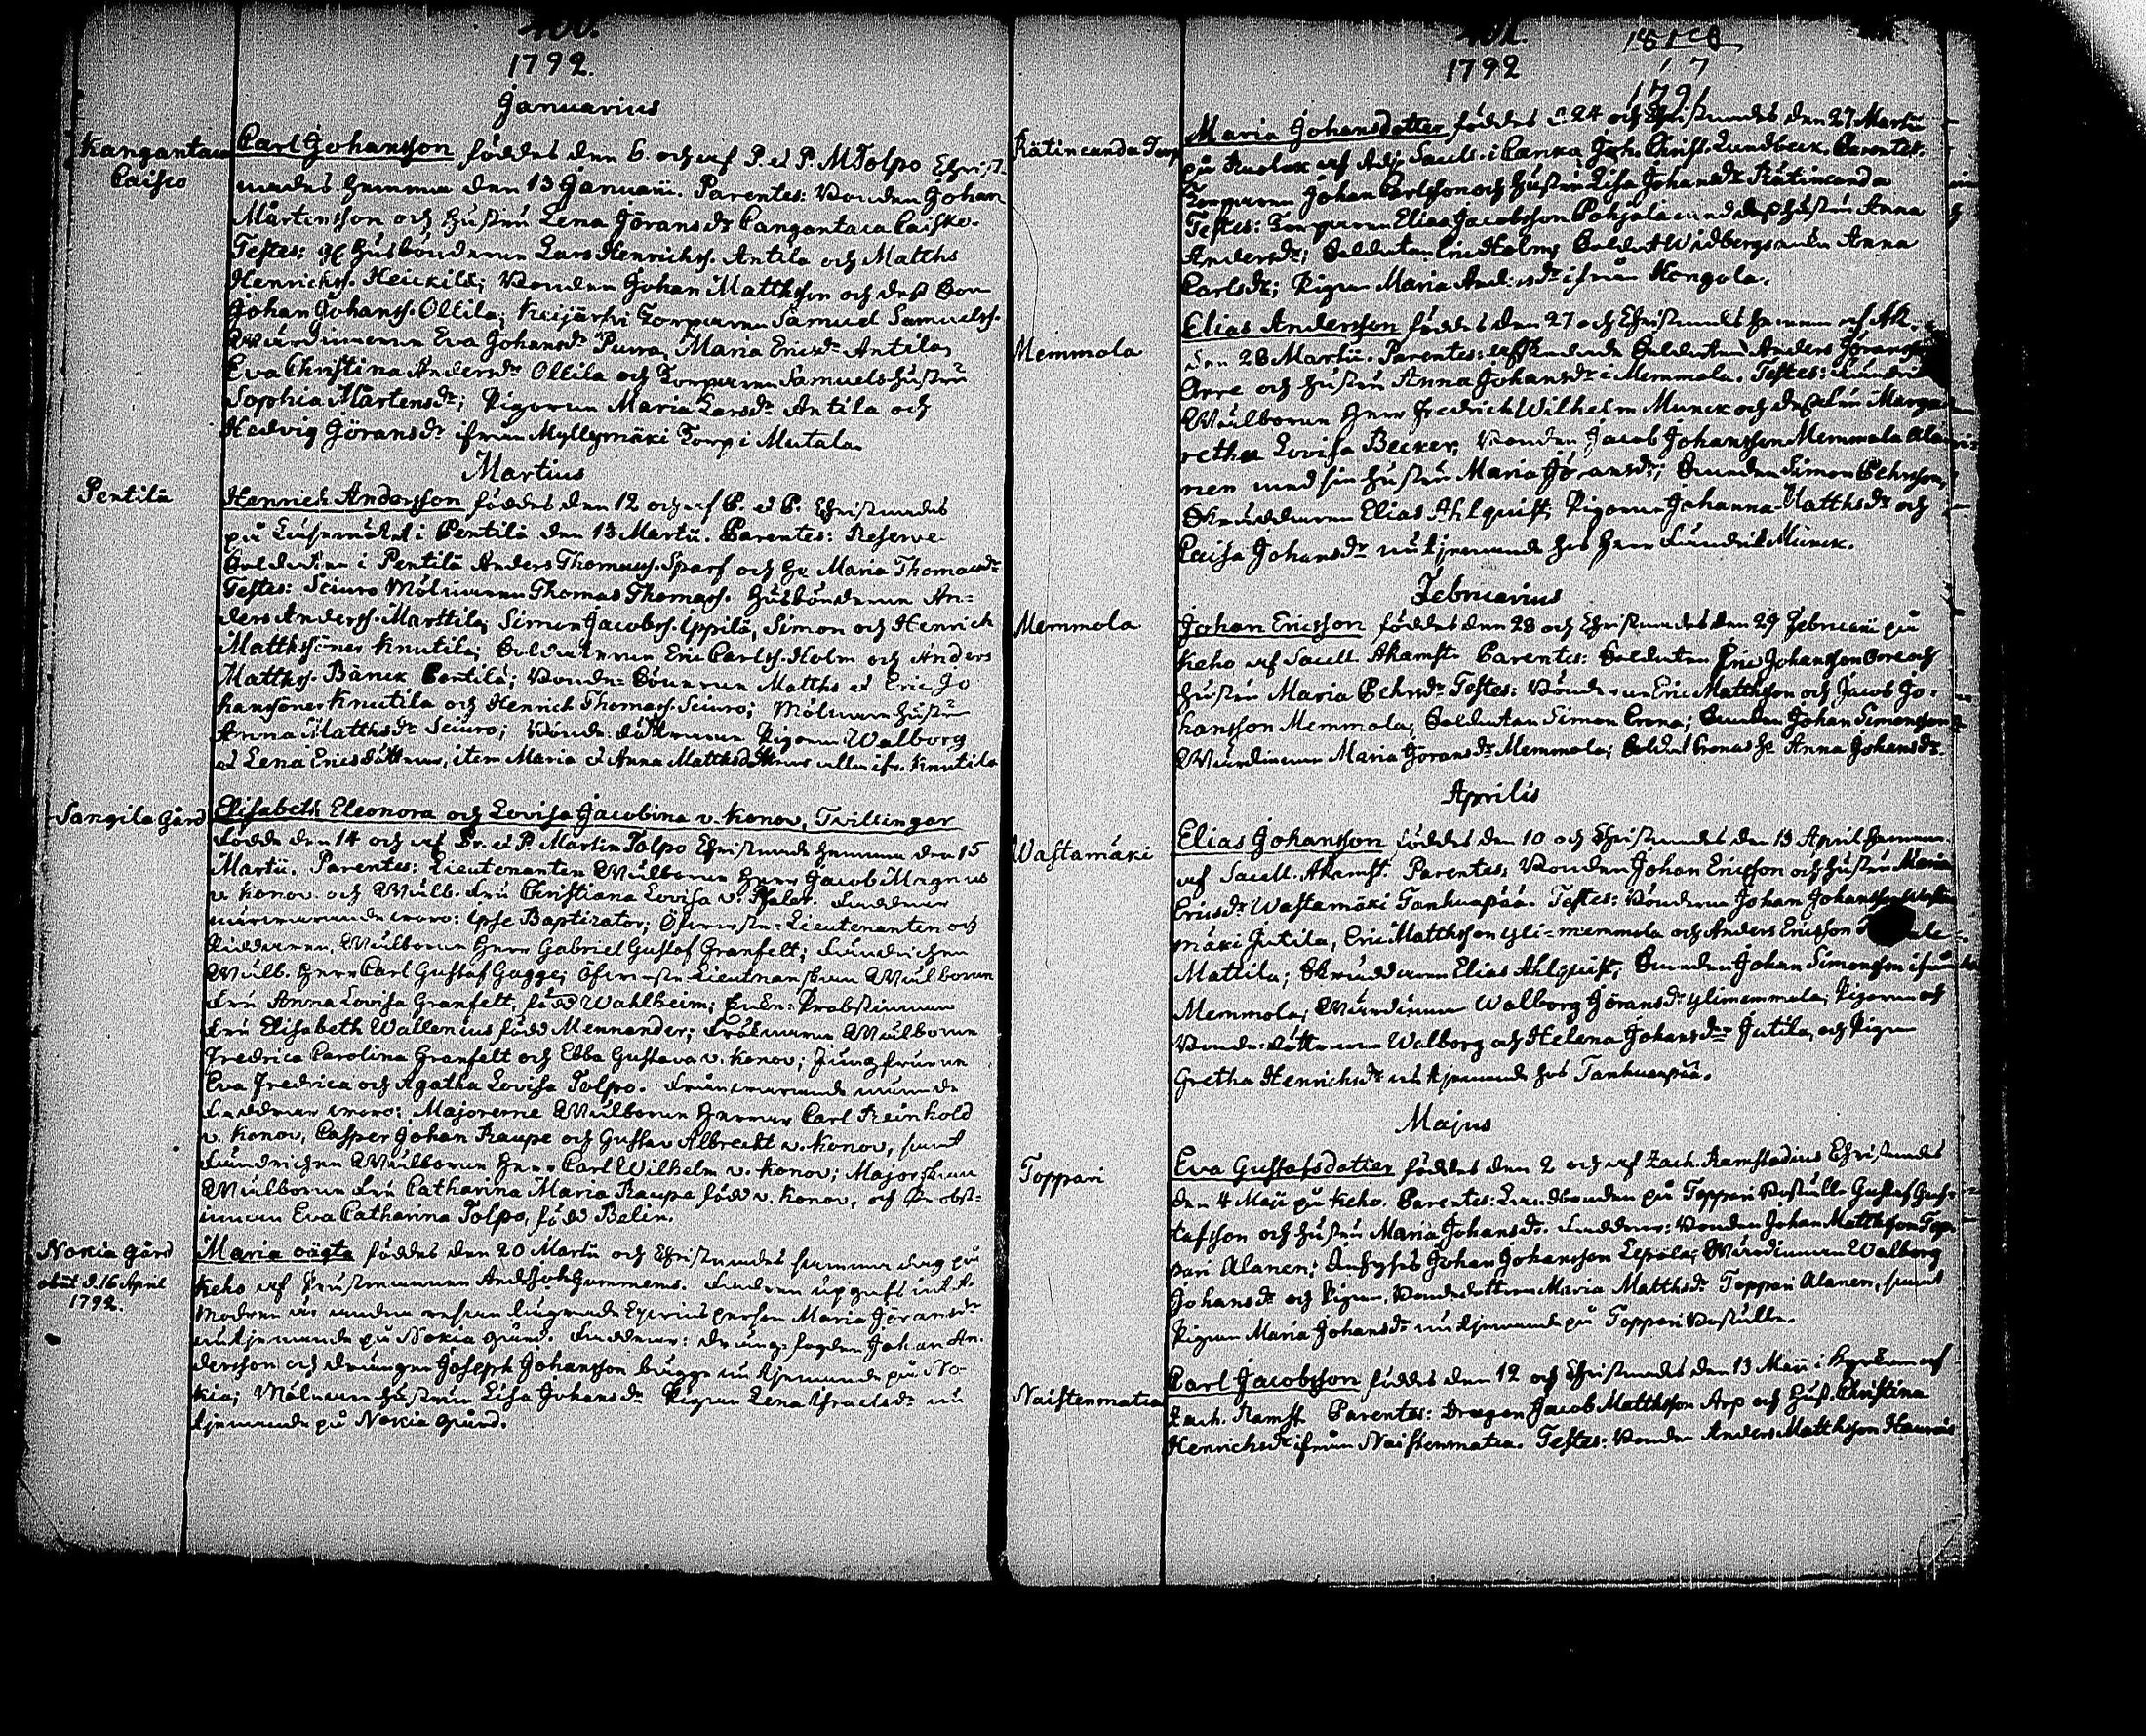 400.
1792.
Januarius
Kangantaca
Caisco
Carl Johansson föddes den 6. och af P. et P. M Tolpo Christ-
nades hemma den 13 Januarii. Parentes: Bonden Johan
Mårtensson och hustru Lena Jöransdr Cangantaca Caisko.
Testes: Husbönderne Lars Henrichss. Antila och Matths
Henrichss. Heickilä; Bonden Johan Matthsson och dess Son
Johan Johanss. Ollila; Keijärfvi Torparen Samuel Samuelss.
Wärdinnorne Eva Johansdr Purra, Maria Ericsdr Antila,
Eva Christina Andersdr Ollila och Torparen Samuels hustru
Sophia Mårtensdr; Pigorne Maria Larsdr Antila och
Hedvig Jöransdr ifrån Myllymäki Torp i Mutala.
Martius
Pentilä
Henrich Andersson föddes den 12 och af P. et P. Christnades
på Läsemötet i Pentilä den 13 Martii. Parentes: Reserve
Soldaten i Pentilä Anders Thomass. Sparf och h. Maria Thomasdr
Testes: Sciuro Mölnaren Thomas Thomass. Husbönderne An=
ders Anderss. Marttila, Simon Jacobss. Ippilä, Simon och Henrich
Matthssöner Knutila; Soldaterne Eric Carlss. Holm och Anders
Matthss. Bänck Pentilä; Bonde=Sönerne Matths et Eric Jo
hanssöner Knutila och Henrich Thomass. Sciuro; Mölnare hustru
Anna Matthsdr Sciuro; Bonde döttrarne Pigorne Walborg
et Lena Ericsdöttrar, item Maria et Anna Matthsdöttrar alla ifr. Knutila
Sangila Gård
Elisabeth Eleonora och Lovisa Jacobina v. Konow, Tvillingar
födde den 14 och af Pr. et P. Martin Tolpo Christnade hemma den 15
Martii. Parentes: Lieutenanten Wälborne Herr Jacob Magnus
v. Konow och Wälb. Fru Christiana Lovisa v. Pfaler. Faddrar
närvarande woro: ipse Baptizator; Öfverste=Lieutenanten och
Riddaren, Wälborne Herr Gabriel Gustaf Granfelt; Fändrichen
Wälb. Herr Carl Gustaf Gagge; Öfverste Lieutnanskan Wälborne
Fru Anna Lovisa Granfelt, född Wahlheim; Enke=Probstinnan
Fru Elisabeth Wallenius född Mennander; Fröknarne Wälborne
Fredrica Carolina Granfelt och Ebba Gustava v. Konow; Jungfrurne
Eva Fredrica och Agatha Lovisa Tolpo. Frånvarande nämnde
Faddrar woro: Majorerne Wälborne Herrar Carl Reinhold
v. Konow, Casper Johan Kaupe och Gustav Albrecht v. Konow, samt
Fändrichen Wälborne Herr Carl Wilhelm v. Konow; Majorskan
Wälborne Fru Catharina Maria Kaupe född v. Konow, och Probst=
innan Eva Catharina Tolpo, född Belin.
Nokia Gård
obiit d. 16 April
1792.
Maria oägta föddes den 20 Martii och Christnades samma dag på
Keho af Prästmannen And. Joh. Gummerus. Fadren upgafs intet.
Modren Maria Jöransdr
tjenande på Nokia gård. Faddrar: Drängfogden Johan An-
dersson och drängen Joseph Johansson bägge tjenande på No-
kia; Mölnare hustrun Lisa Johansdr Pigan Lena Israelsdr
tjenande på Nokia gård.
401.
1792
17
1791
Rätincanda Torp
Maria Johansdotter föddes d. 24 och Christnades den 27 Martii
på Kuolax af Adj. Sacell. i Canka Joh. Christ. Lundbeck. Parentes.
Torparen Johan Carlsson och hustru Lisa Johansdr Rätincanda
Testes: Torparen Elias Jacobsson Pohjola med dess hustru Anna
Andersdr; Soldaten Eric Holms Soldat Widbergs enka Anna
Carlsdr; Pigan Maria Andersdr ifrån Hongola.
Memmola
Elias Andersson föddes den 27 och Christnades hemma af Ak.
den 28 Martii. Parentes: Afskedade Soldaten Anders Jöransson
Orre och hustru Anna Johansdr i Memmola. Testes: Fändric
Wälborne Herr Fredrich Wilhelm Munck och dess Fru Marga
retha Lovisa Becker; Bonden Jacob Johansson Memmola Ala
nen med sin hustru Maria Jöransdr; Bonden Simon Pehrsson,
Skräddaren Elias Ahlquist, Pigorne Johanna Matthsdr och
Caisa Johansdr tjenande hos Herr Fändric Munck.
Februarius
Memmola
Johan Ericsson föddes den 28 och Christnades den 29 Februarii på
Keho af Sacell. Ahamst. Parentes: Soldaten Eric Johansson Orre och
hustru Maria Pehrsdr Testes: Bönderne Eric Matthsson och Jacob Jo-
hansson Memmola; Soldaten Simon Crona; Bonden Johan Simonsson
Wärdinnan Maria Jöransdr Memmola; Soldat Cronas h. Anna Johansdr.
Aprilis
Wastamäki
Elias Johansson föddes den 10 och Christnades den 13 April hemma
af Sacell. Ahamst. Parentes: Bonden Johan Ericsson och hustru Maria
Ericsdr Wastamäki Tanhuapää. Testes: Bönderne Johan Johansson Wasta
mäki Jutila, Eric Matthsson yli=memmola och Anders Ericsson
Mattila; Skräddaren Elias Ahlquist; Bonden Johan Simonsson ifrån
Memmola; Wärdinnan Walborg Jöransdr ylimemmola; Pigorne och
Bonde=döttrarne Walborg och Helena Johansdr Jutila, och Pigan
Gretha Henrichsdr tjenande hos Tanhuapää.
Majus
Toppari
Eva Gustafsdotter föddes den 2 och af Zach. Ramstadius Christnades
den 4 Maii på Keho. Parentes: Landbonden på Toppari Boställe Gustaf Gus-
tafsson och hustru Maria Johansdr. Faddrar: Bonden Johan Matthsson Top-
pari Alanen; Johan Johansson Lepälä; Wärdinnan Walborg
Johansdr och Pigan, Bondedottren Maria Matthsdr Toppari Alanen, samt
Pigan Maria Johansdr tjenande på Toppari Boställe.
Naistenmatca
Carl Jacobsson föddes den 12 och Christnades den 13 Maii i Kyrkan af
Zach. Ramst. Parentes: Dragon Jacob Matthsson Arp och hust. Christina
Henrichsdr ifrån Naistenmatca. Testes: Bonden Anders Matthsson